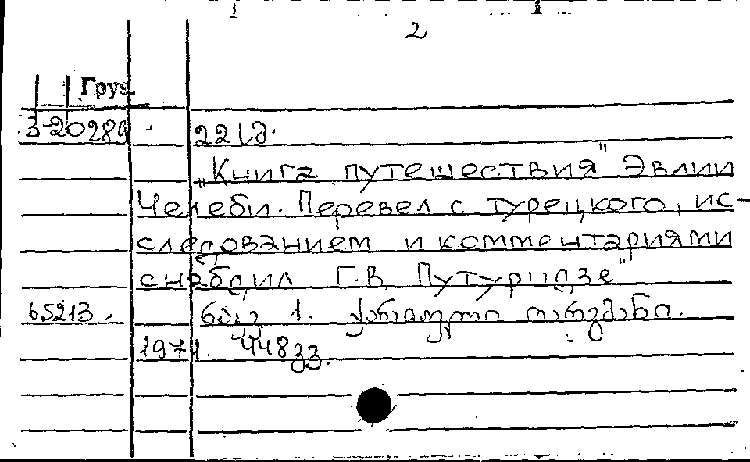 2
Груз.
221 გ.
„Книга путешествия" Эвлии
Челеби. Перевел с турецкого, ис-
следованием и комментариями
снабдил Г.В. Путуридзе"
65213. ნაკ. 1. ქართული თარგმანი.
448 გვ.